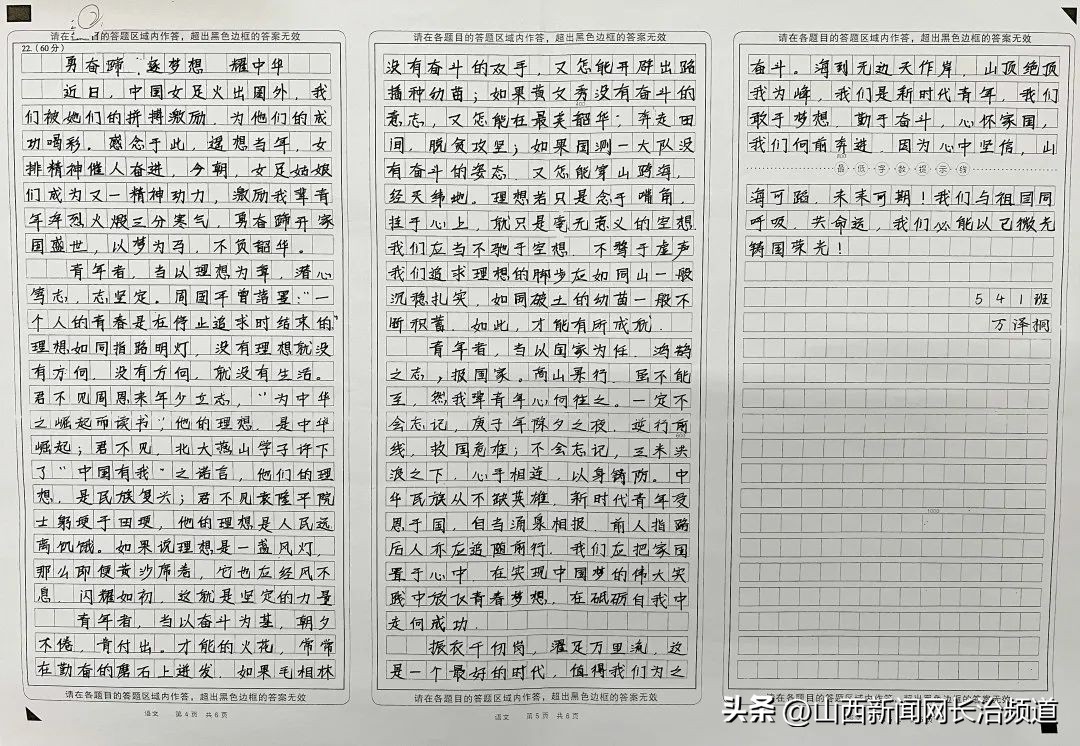 请在各题目的答题区域内作答，超出黑色边框的答案无效
22.（60分）
勇奋蹄 逐梦想 耀中华
近日，中国女足火出圈外，我
们被她们的拼搏激励，为他们的成
功喝彩。感念于此，遥想当年，女
排精神催人奋进，今朝，女足姑娘
们成为又一精神动力，激励我辈青
年淬烈火煅三分寒气，勇奋蹄开家
国盛世，以梦为马，不负韶华。
青年者，当以理想为帆，潜心
笃志，志坚定。周国平曾诸墨："一
个人的青春是在停止追求时结束的"
理想如同指路明灯，没有理想就没
有方向，没有方向，就没有生活。
君不见周恩来年少立志，"为中华
之崛起而读书"，他的理想，是中华
崛起；君不见，北大燕山学子许下
了"中国有我"之诺言，他们的理
想，是民族复兴；君不见袁隆平院
士躬耕于田埂，他的理想是人民远
离饥饿。如果说理想是一盏风灯，
那么即便黄沙席卷，它也应经风不
息，闪耀如初，这就是坚定的力量
青年者，当以奋斗为基，朝夕
不倦，肯付出。才能的火花，常常
在勤奋的磨石上迸发，如果毛相林
请在各题目的答题区域内作答，超出黑色边框的答案无效
语文 第4页 共6页
请在各题目的答题区域内作答，超出黑色边框的答案无效
没有奋斗的双手，又怎能开辟出路
播种幼苗；如果黄文秀没有奋斗的
意志，又怎能在最美韶华，奔走田
间，脱贫攻坚；如果国测一大队没
有奋斗的姿态，又怎能穿山跨海，
经天纬地。理想若只是念于嘴角，
挂于心上，就只是毫无意义的空想
我们应当不驰于空想，不骛于虚声
我们追求理想的脚步应如同山一般
沉稳扎实，如同破土的幼苗一般不
断积蓄，如此，才能有所成就。
青年者，当以国家为任，鸿鹄
之志，报国家。高山景行，虽不能
至，然我辈青年心向往之。一定不
会忘记，庚子年除夕之夜，逆行前
线，救国危难；不会忘记，三米洪
浪之下，心手相连，以身铸防。中
华民族从不缺英雄，新时代青年受
恩于国，自当涌泉相报，前人指路
后人亦应追随前行，我们应把家国
置于心中，在实现中国梦的伟大实
践中放飞青春梦想，在砥砺自我中
走向成功。
振衣千仞岗，濯足万里流，这
是一个最好的时代，值得我们为之
请在各题目的答题区域内作答，超出黑色边框的答案无效
语文 第5页 共6页
请在各题目的答题区域内作答，超出黑色边框的答案无效
奋斗。海到无边天作岸，山顶绝顶
我为峰，我们是新时代青年，我们
敢于梦想，勤于奋斗，心怀家国，
我们向前奔进，因为心中坚信，山
最低字数提示线
海可蹈，未来可期！我们与祖国同
呼吸，共命运，我们必能以己微光
铸国荣光！
541班
万泽桐
1000
请在各题目的答题区域内作答，超出黑色边框的答案无效
头条@山西新闻网长治频道